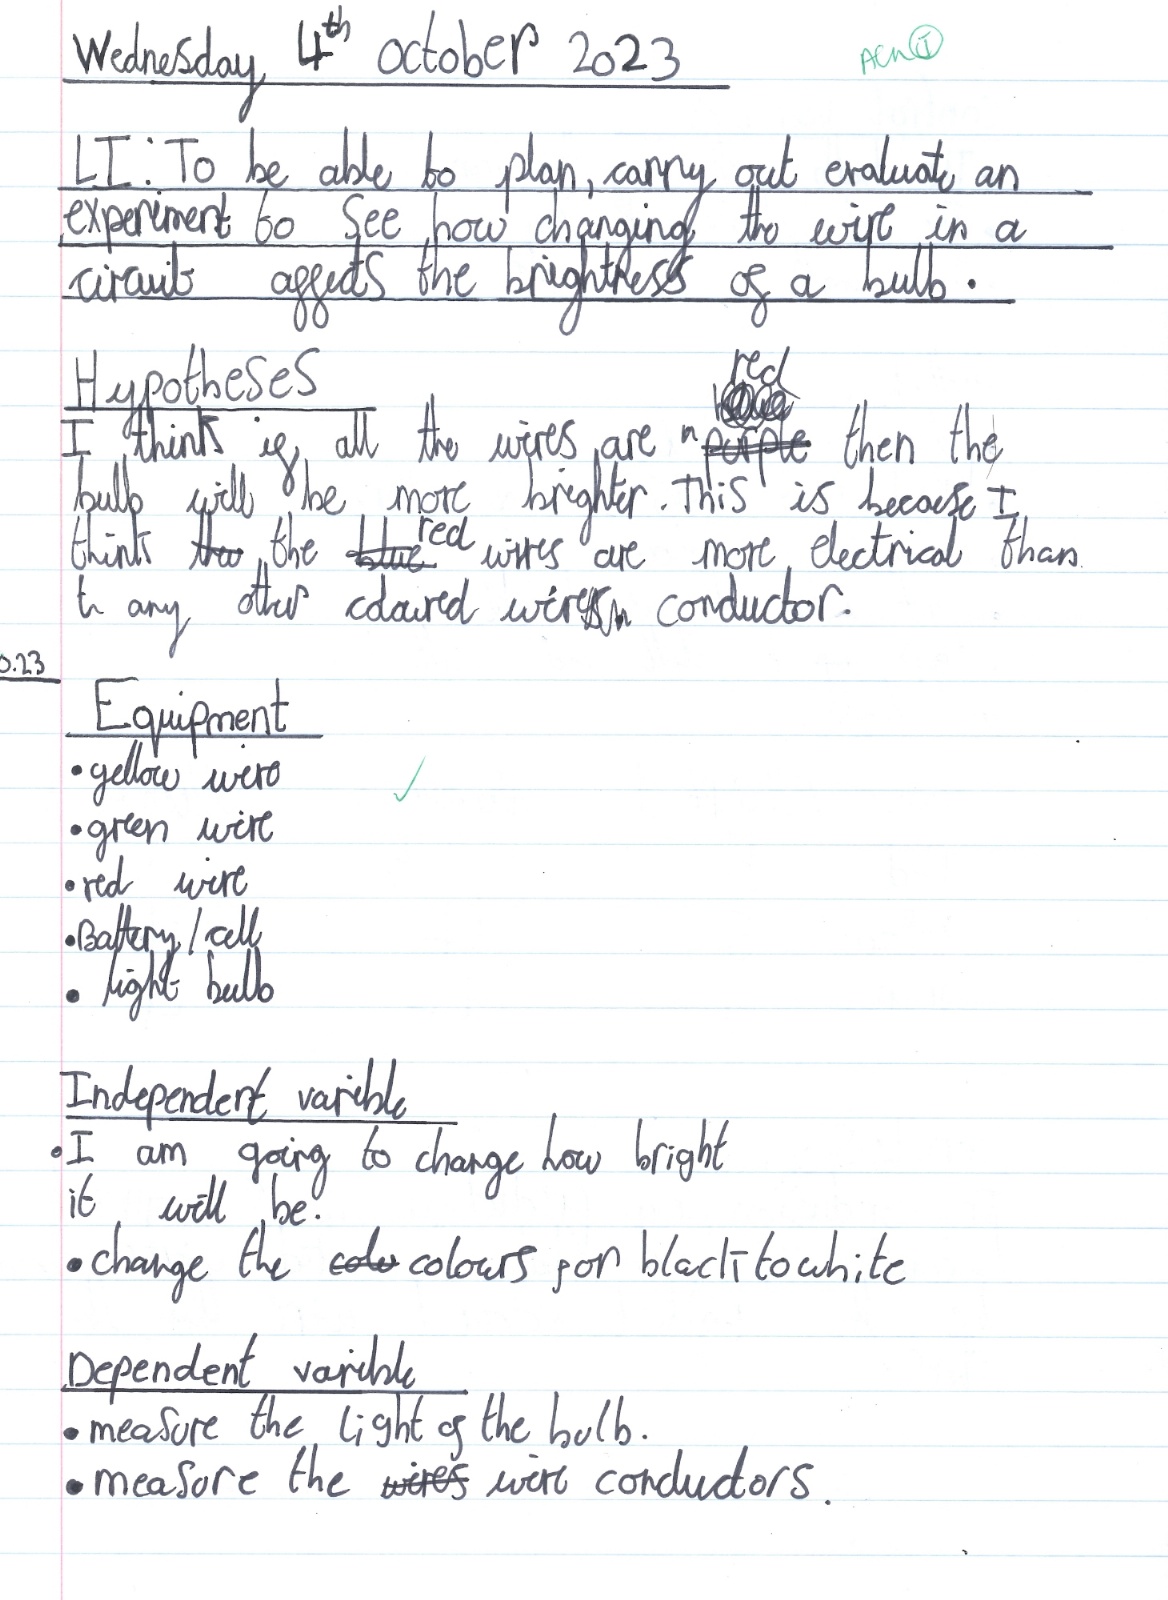 Wednesday 4th october 2023
ACH I
LI: To be able to plan, carry out evaluate an
experiment to see how changing the wire in a
circuit affects the brightness of a bulb.
Hypotheses
red
I think if all the wires are purple then the
bulb will be more brighter. This is because I
think the the blue red wires are more electrical than
any other coloured wires conductor.
0.23
Equipment
• yellow wire
• green wire
• red wire
• Battery / cell
• light bulb
Independent varible
• I am going to change how bright
it will be.
• change the colo colours for black to white
Dependent varible
• measure the light of the bulb.
• measure the wires wire conductors.